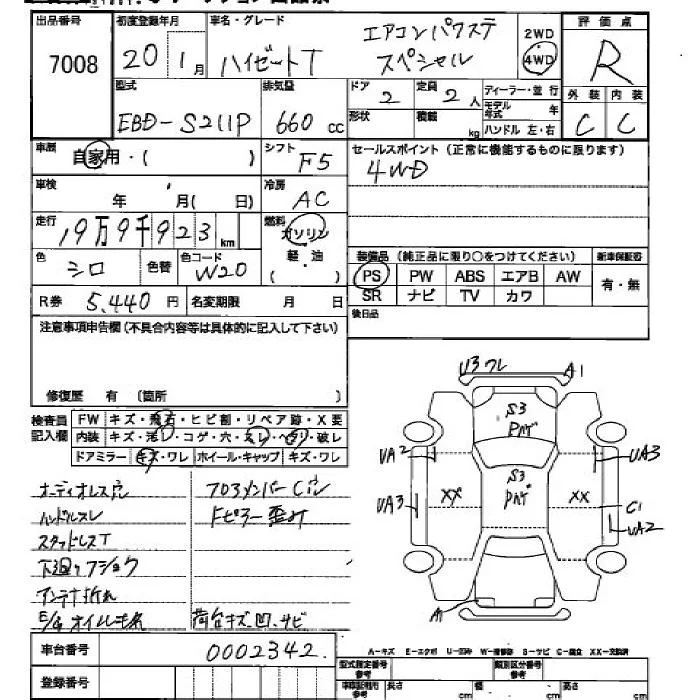 出品番号
7008
初度登録年月
20年 1月
車名・グレード
ハイゼットT エアコンパワステ
スペシャル
2WD
4WD
評価点
R
型式
EBD-S211P
排気量
660 cc
ドア 2
定員 2人
形状
積載 kg
ディーラー・並行
モデル年式 年
ハンドル 左・右
外装 内装
C C
車歴
自家用・( )
シフト
F5
セールスポイント(正常に機能するものに限ります)
4WD
車検
年 月( 日)
冷房
AC
走行
19万9千923km
燃料
ガソリン
軽・油
( )
色
シロ
色替
色コード
W20
装備品(純正品に限り○をつけてください)
新車保証書
PS PW ABS エアB AW
有・無
SR ナビ TV カワ
R券 5,440 円
名変期限 月 日
後日品
注意事項申告欄(不具合内容等は具体的に記入して下さい)
修復歴 有 (箇所 )
検査員
記入欄
FW キズ・飛石・ヒビ割・リペア跡・X要
内装 キズ・汚レ・コゲ・穴・スレ・ヘタリ・破レ
ドアミラー キズ・ワレ ホイール・キャップ キズ・ワレ
オーディオレス穴
ハンドルスレ
スタッドレスT
下廻リフショク
アンテナ折れ
E/G オイルモれ
フロアメンバーC穴
Fピラー歪み
荷台キズ、凹、サビ
U3ワレ A1
S3
Pハゲ
UA2 UA3
S3
Pハゲ
UA3 XX XX C1
UA2
A1
A-キズ E-エクボ U-凹み W-補修跡 S-サビ C-腐食 XX-交換済
車台番号
0002342
登録番号
型式指定番号
類別区分番号
参考
車検証利用
参考
長さ cm
幅 cm
高さ cm